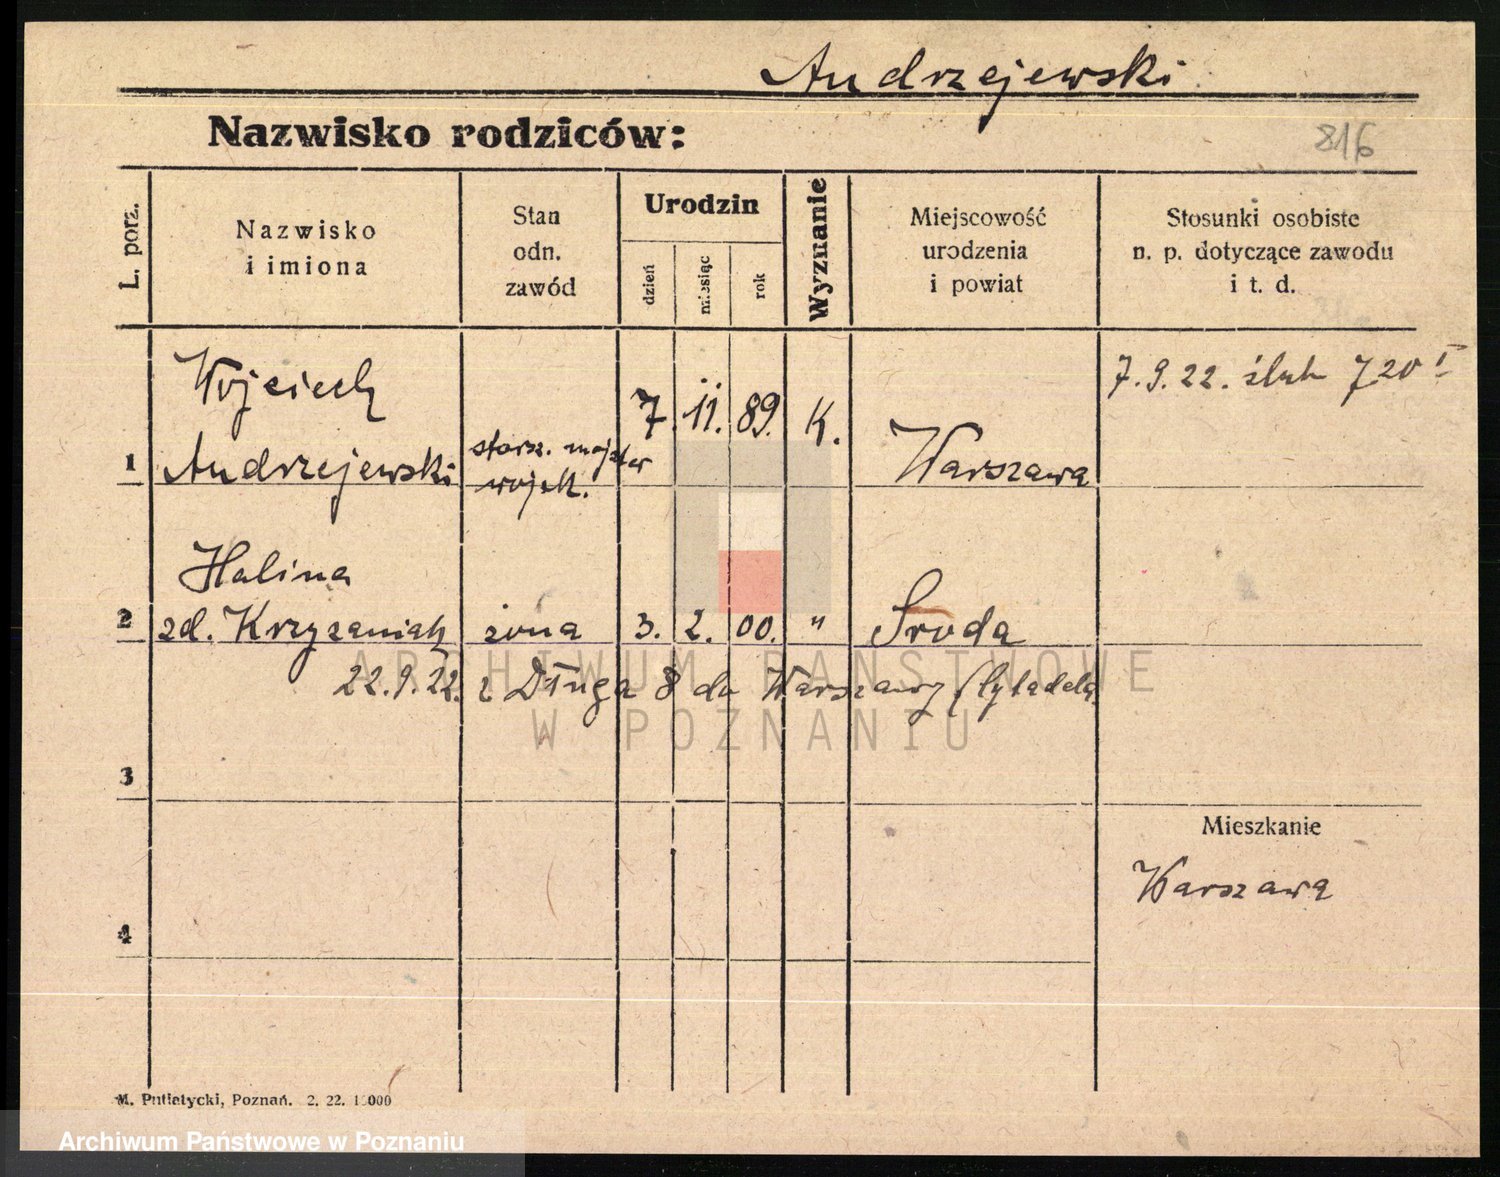 Andrzejewski
Nazwisko rodziców:
816
L. porz.
Nazwisko
i imiona
Stan
odn.
zawód
Urodzin
dzień
miesiąc
rok
Wyznanie
Miejscowość
urodzenia
i powiat
Stosunki osobiste
n. p. dotyczące zawodu
i t. d.
7.9.22. ślub 720 I
Wojciech
7. 11. 89. K.
1 Andrzejewski starsz. majster Warszawa
wojsk.
Halina
2 zd. Krzyżaniak żona 3. 2. 00. " Środa
22.9.22. z Długa 8 do Warszawy Cytadela
3
Mieszkanie
Warszawa
4
M. Putiatycki, Poznań. 2. 22.
ARCHIWUM PAŃSTWOWE
W POZNANIU
Archiwum Państwowe w Poznaniu